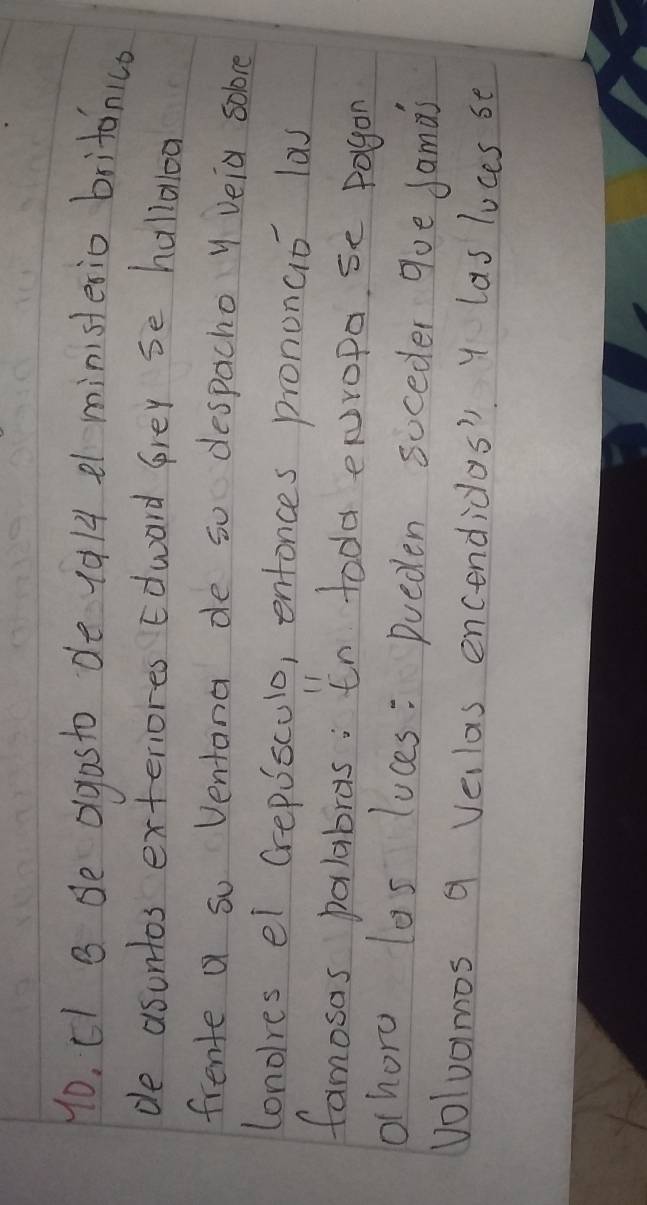 10. El 3 de agosto de 1914 el ministerio británico
de asuntos exteriores Edward Grey se hallaba
frente a su ventana de su despacho y veia sobre
londres el Crepúsculo, entonces pronunció las
famosas palabras: "En toda europa se pagan
ahora las luces: pueden suceder que Jamás
Volvamos a verlas encendidas". y las luces se